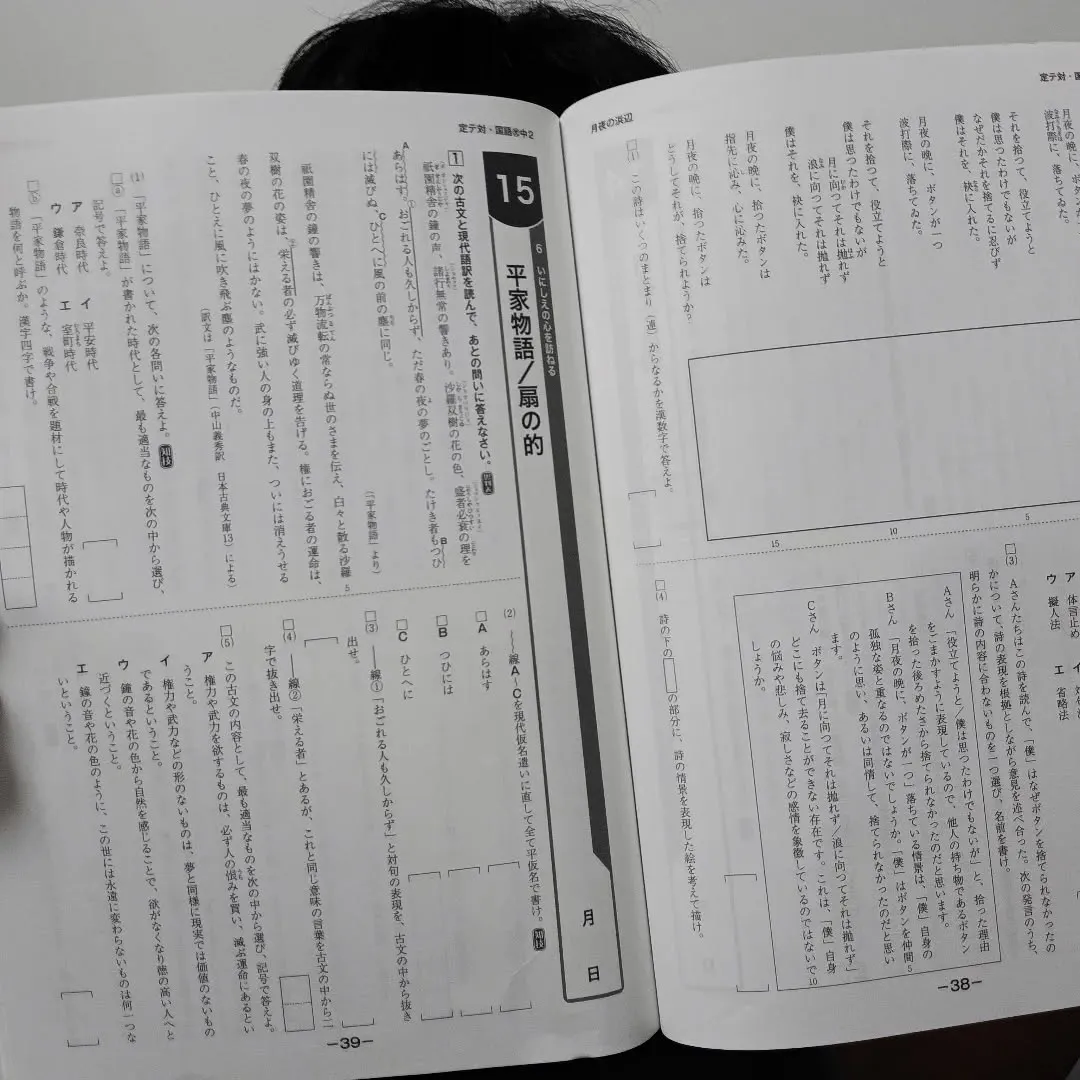 定テ対・国
月夜の浜辺
月夜の晩に、
波打際に、落ちてゐた。
それを拾つて、役立てようと
僕は思つたわけでもないが
なぜだかそれを捨てるに忍びず
僕はそれを、袂に入れた。
月夜の晩に、ボタンが一つ
波打際に、落ちてゐた。
それを拾つて、役立てようと
僕は思つたわけでもないが
月に向つてそれは抛れず
浪に向つてそれは抛れず
僕はそれを、袂に入れた。
月夜の晩に、拾つたボタンは
指先に沁み、心に沁みた。
月夜の晩に、拾つたボタンは
どうしてそれが、捨てられようか?
5
10
15
□(1) この詩はいくつのまとまり(連)からなるかを漢数字で答えよ。
ア 体言止め
ウ 擬人法
エ 省略法
□(3) Aさんたちはこの詩を読んで、「僕」はなぜボタンを捨てられなかったの
かについて、詩の表現を根拠としながら意見を述べ合った。次の発言のうち、
明らかに詩の内容に合わないものを一つ選び、名前を書け。
Aさん 「役立てようと/僕は思つたわけでもないが」と、拾った理由
をごまかすように表現しているので、他人の持ち物であるボタン
を拾った後ろめたさから捨てられなかったのだと思います。
Bさん 「月夜の晩に、ボタンが一つ」落ちている情景は、「僕」自身の
孤独な姿と重なるのではないでしょうか。「僕」はボタンを仲間
のように思い、あるいは同情して、捨てられなかったのだと思い
ます。
Cさん ボタンは「月に向つてそれは抛れず/浪に向つてそれは抛れず」
どこにも捨て去ることができない存在です。これは、「僕」自身
の悩みや悲しみ、寂しさなどの感情を象徴しているのではないで
しょうか。
5
10
□(4) 詩の下の□の部分に、詩の情景を表現した絵を考えて描け。
―38―
定テ対・国語中2
15
6 いにしえの心を訪ねる
平家物語/扇の的
月 日
1 次の古文と現代語訳を読んで、あとの問いに答えなさい。
祇園精舎の鐘の声、諸行無常の響きあり。沙羅双樹の花の色、盛者必衰の理を
Aあらはす。①おごれる人も久しからず、ただ春の夜の夢のごとし。たけき者もBつひ
には滅びぬ、Cひとへに風の前の塵に同じ。
(「平家物語」より)
祇園精舎の鐘の響きは、万物流転の常ならぬ世のさまを伝え、白々と散る沙羅
双樹の花の姿は、②栄える者の必ず滅びゆく道理を告げる。権におごる者の運命は、
春の夜の夢のようにはかない。武に強い人の身の上もまた、ついには消えうせる
こと、ひとえに風に吹き飛ぶ塵のようなものだ。
5
(訳文は「平家物語」(中山義秀訳 日本古典文庫13)による)
(1) 「平家物語」について、次の各問いに答えよ。知技
□ⓐ 「平家物語」が書かれた時代として、最も適当なものを次の中から選び、
記号で答えよ。
ア 奈良時代 イ 平安時代
ウ 鎌倉時代 エ 室町時代
□ⓑ 「平家物語」のような、戦争や合戦を題材にして時代や人物が描かれる
物語を何と呼ぶか。漢字四字で書け。
(2) 〜〜線A〜Cを現代仮名遣いに直して全て平仮名で書け。知技
□A あらはす
□B つひには
□C ひとへに
□(3) ――線①「おごれる人も久しからず」と対句の表現を、古文の中から抜き
出せ。
□(4) ――線②「栄える者」とあるが、これと同じ意味の言葉を古文の中から二
字で抜き出せ。
□(5) この古文の内容として、最も適当なものを次の中から選び、記号で答えよ。
ア 権力や武力を欲するものは、必ず人の恨みを買い、滅ぶ運命にあるとい
うこと。
イ 権力や武力などの形のないものは、夢と同様に現実では価値のないもの
であるということ。
ウ 鐘の音や花の色から自然を感じることで、欲がなくなり徳の高い人へと
近づくということ。
エ 鐘の音や花の色のように、この世には永遠に変わらないものは何一つな
いということ。
―39―